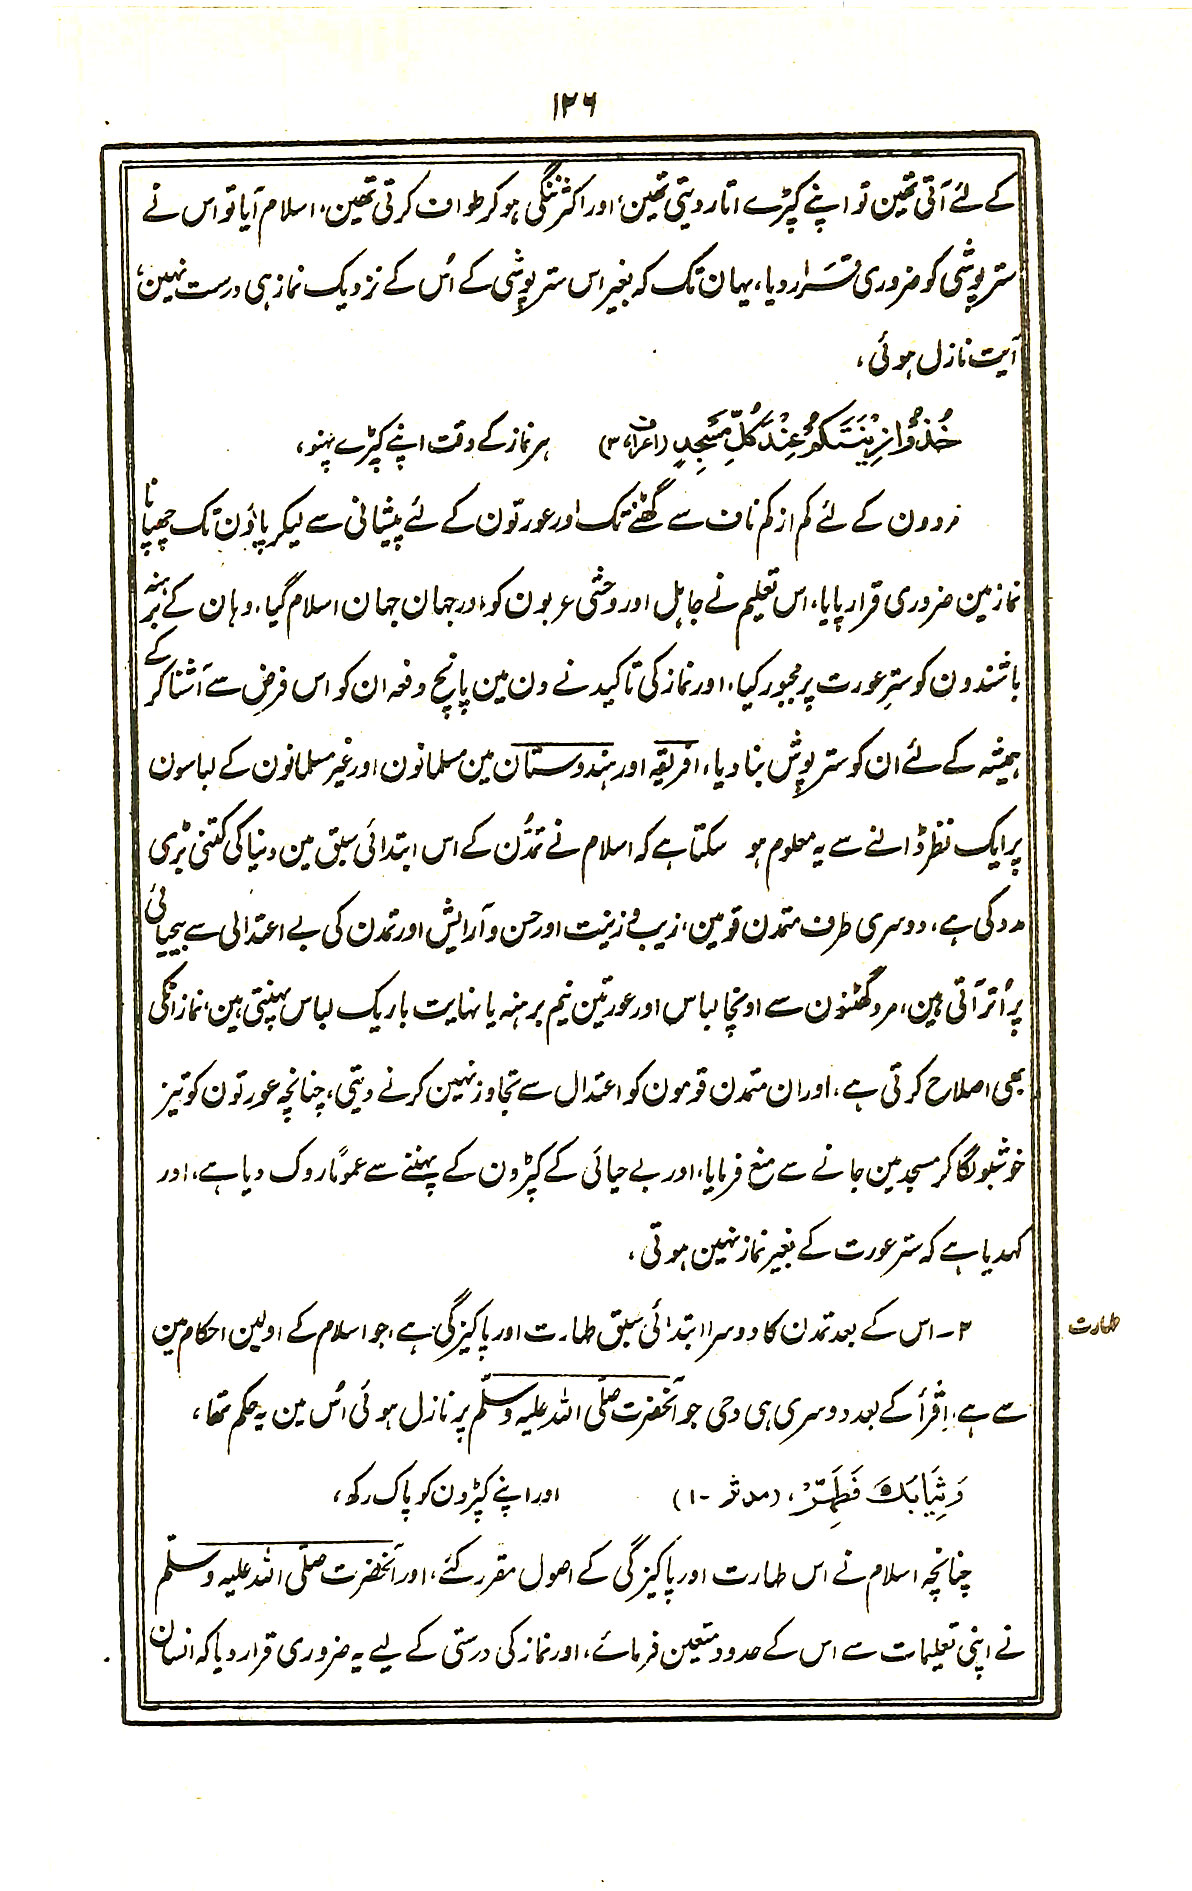 ۱۲۶
کے لئے آتی تھین تو اپنے کپڑے اتار دیتی تھین، اور اکثر ننگی ہو کر طواف کرتی تھین، اسلام آیا تو اس نے
ستر پوشی کو ضروری قرار دیا، یہان تک کہ بغیر اس ستر پوشی کے اُس کے نزدیک نماز ہی درست نہین،
آیت نازل ہوئی،
خُذُوْا زِيْنَتَكُمْ عِنْدَ كُلِّ مَسْجِدٍ (اعراف، ۳) ہر نماز کے وقت اپنے کپڑے پہنو،
مردون کے لئے کم از کم ناف سے گھٹنے تک اور عورتون کے لئے پیشانی سے لیکر پاؤن تک چھپانا
نماز مین ضروری قرار پایا، اس تعلیم نے جاہل اور وحشی عربون کو اور جہان جہان اسلام گیا، وہان کے برہنہ
باشندون کو سترِ عورت پر مجبور کیا، اور نماز کی تاکید نے دن مین پانچ دفعہ ان کو اس فرض سے آشنا کر کے
ہمیشہ کے لئے ان کو ستر پوش بنا دیا، افریقہ اور ہندوستان مین مسلمانون اور غیر مسلمانون کے لباسون
پر ایک نظر ڈالنے سے یہ معلوم ہو سکتا ہے کہ اسلام نے تمدُّن کے اس ابتدائی سبق مین دنیا کی کتنی بڑی
مدد کی ہے، دوسری طرف متمدن قومین، زیب و زینت اور حسن و آرایش اور تمدن کی بے اعتدالی سے بیحیائی
پر اُتر آتی ہین، مرد گھٹنون سے اونچا لباس اور عورتین نیم برہنہ یا نہایت باریک لباس پہنتی ہین، نماز انکی
بھی اصلاح کرتی ہے، اور ان متمدن قومون کو اعتدال سے تجاوز نہین کرنے دیتی، چنانچہ عورتون کو تیز
خوشبو لگا کر مسجد مین جانے سے منع فرمایا، اور بے حیائی کے کپڑون کے پہننے سے عموماً روک دیا ہے، اور
کہدیا ہے کہ ستر عورت کے بغیر نماز نہین ہوتی،
طہارت
۲- اس کے بعد تمدن کا دوسرا ابتدائی سبق طہارت اور پاکیزگی ہے، جو اسلام کے اولین احکام مین
سے ہے، اِقْرَأ کے بعد دوسری ہی وحی جو آنحضرت صلّی اللہ علیہ وسلّم پر نازل ہوئی اُس مین یہ حکم تھا،
وَثِيَابَكَ فَطَهِّرْ، (مدثر - ۱) اور اپنے کپڑون کو پاک رکھ،
چنانچہ اسلام نے اس طہارت اور پاکیزگی کے اصول مقرر کئے، اور آنحضرت صلّی اللہ علیہ وسلّم
نے اپنی تعلیمات سے اس کے حدود متعین فرمائے، اور نماز کی درستی کے لیے یہ ضروری قرار دیا کہ انسان